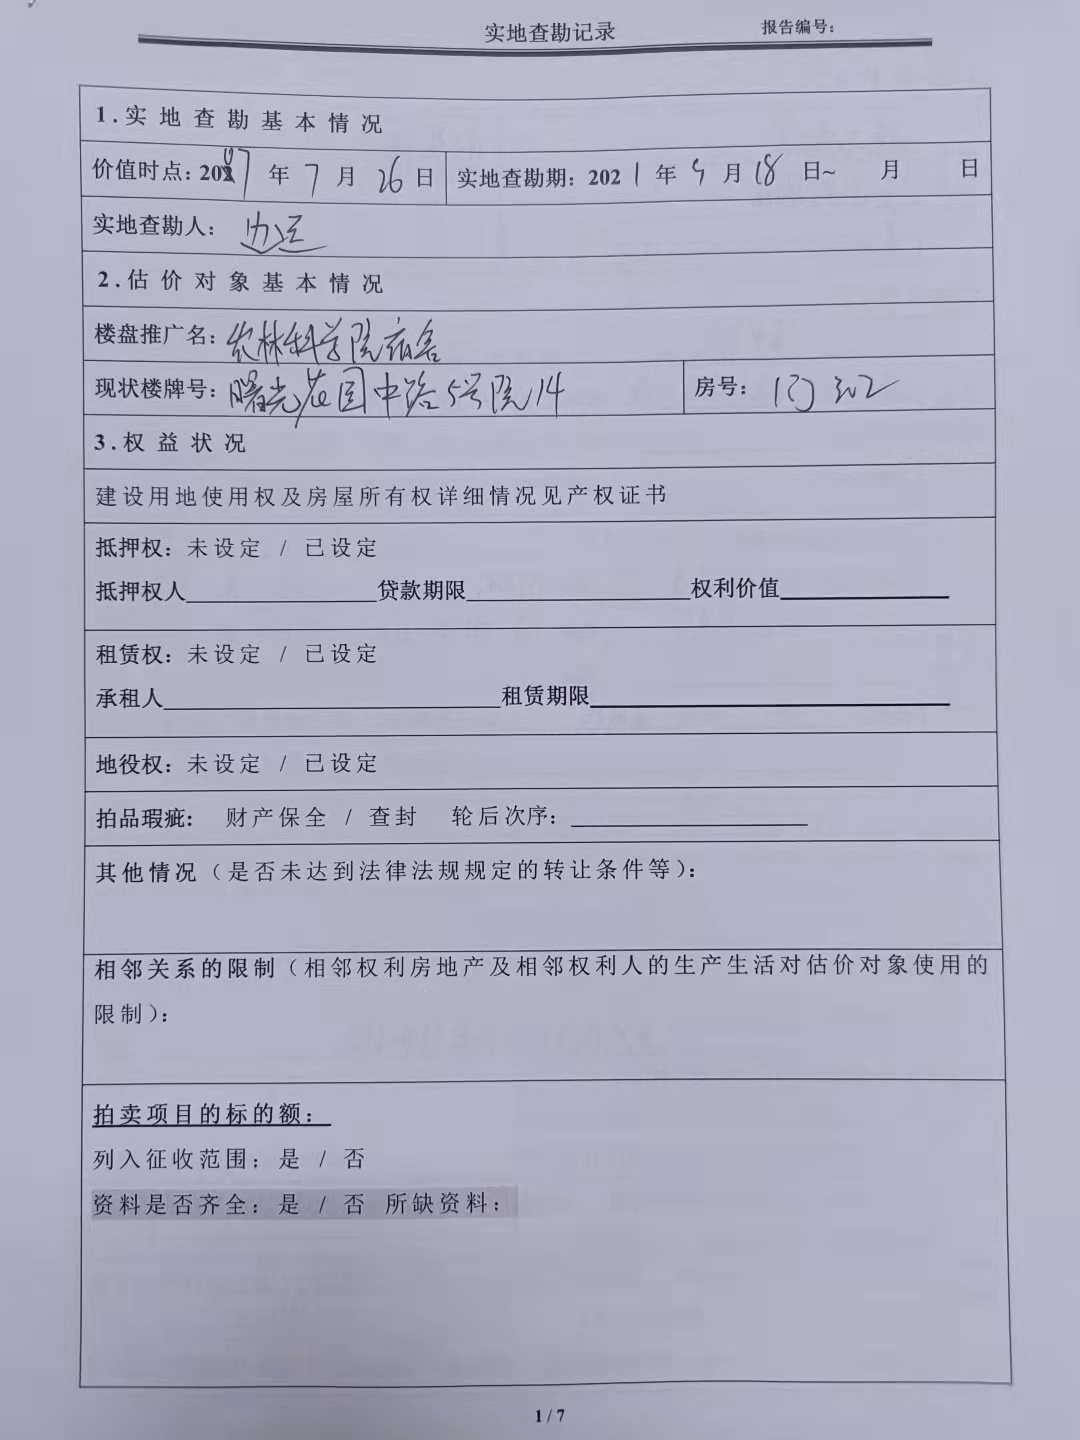 实地查勘记录 报告编号：
1.实地查勘基本情况
价值时点：2007年7月26日 实地查勘期：2021年5月18日~ 月 日
实地查勘人：边运
2.估价对象基本情况
楼盘推广名：农林科学院宿舍
现状楼牌号：曙光花园中路5号院14 房号：1门302
3.权益状况
建设用地使用权及房屋所有权详细情况见产权证书
抵押权：未设定 / 已设定
抵押权人________贷款期限________权利价值________
租赁权：未设定 / 已设定
承租人________租赁期限________
地役权：未设定 / 已设定
拍品瑕疵： 财产保全 / 查封 轮后次序：________
其他情况（是否未达到法律法规规定的转让条件等）：
相邻关系的限制（相邻权利房地产及相邻权利人的生产生活对估价对象使用的
限制）：
拍卖项目的标的额：
列入征收范围：是 / 否
资料是否齐全：是 / 否 所缺资料：
1 / 7